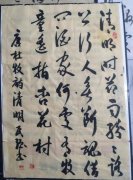 清明时节雨纷纷路
上行人欲断魂借
问酒家何处有牧
童遥指杏花村
唐杜牧 清明